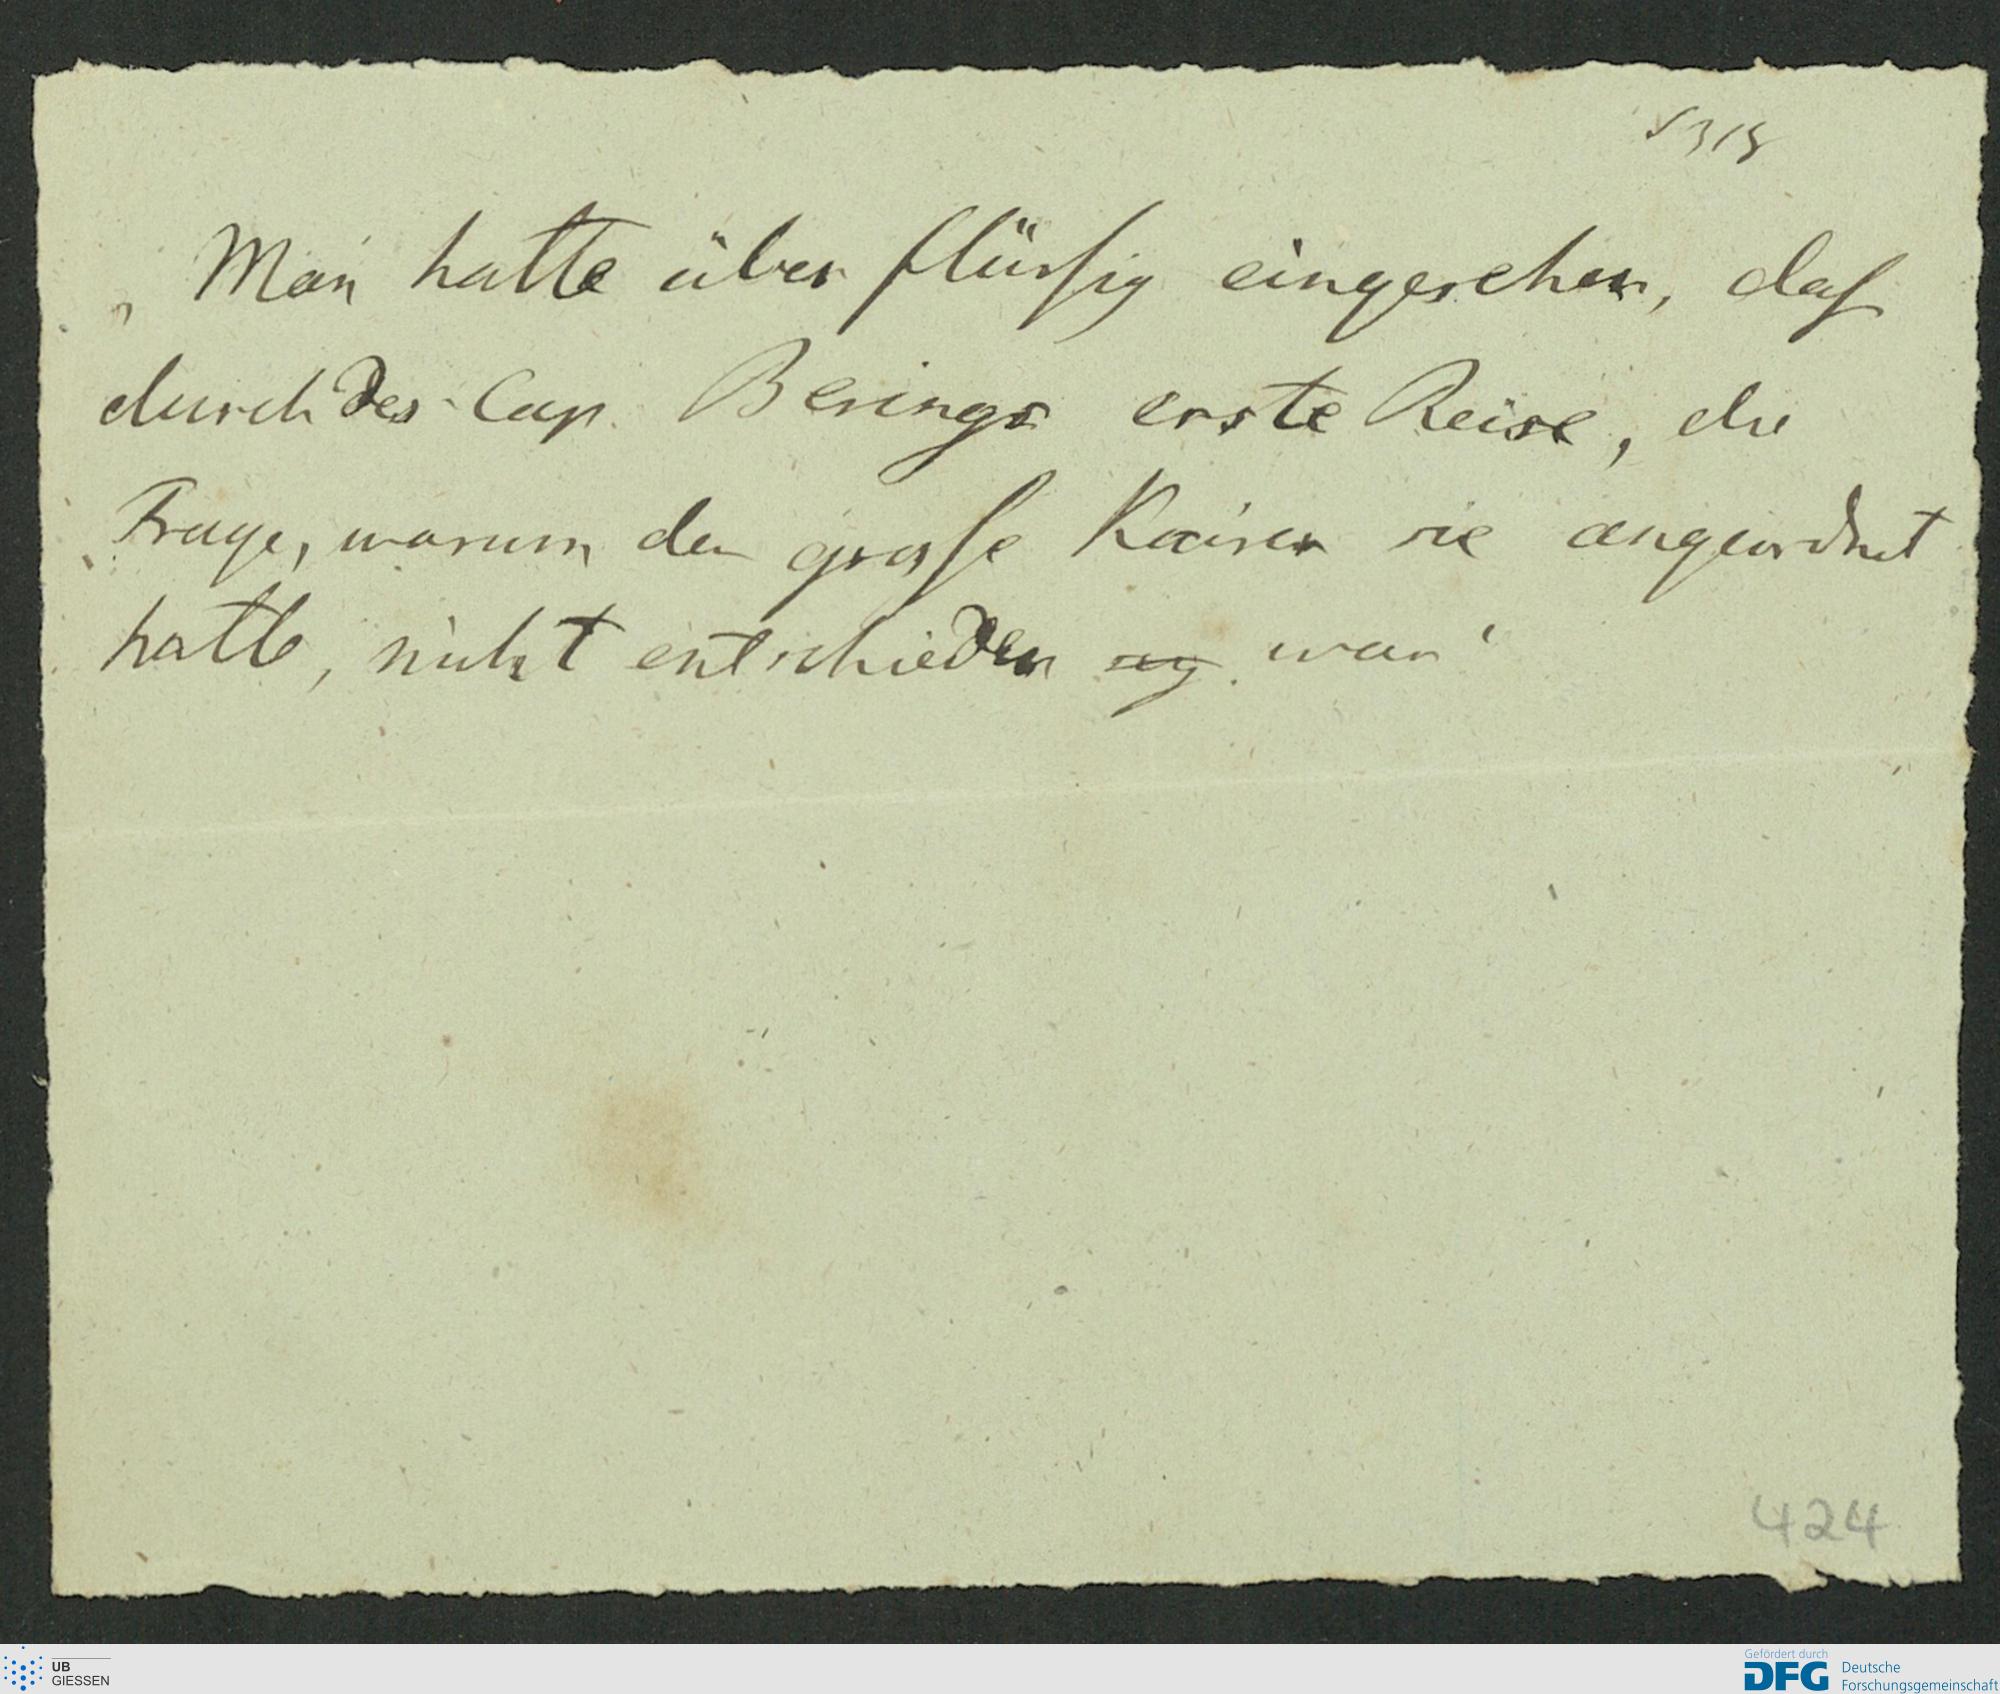 S 318
„Man hatte überflüssig eingesehen, daß
durch des Cap. Berings erste Reise, die
Frage, warum der grosse Kaiser sie angeordnet
hatte, nicht entschieden war“
424
UB
GIESSEN
Gefördert durch
DFG Deutsche
Forschungsgemeinschaft